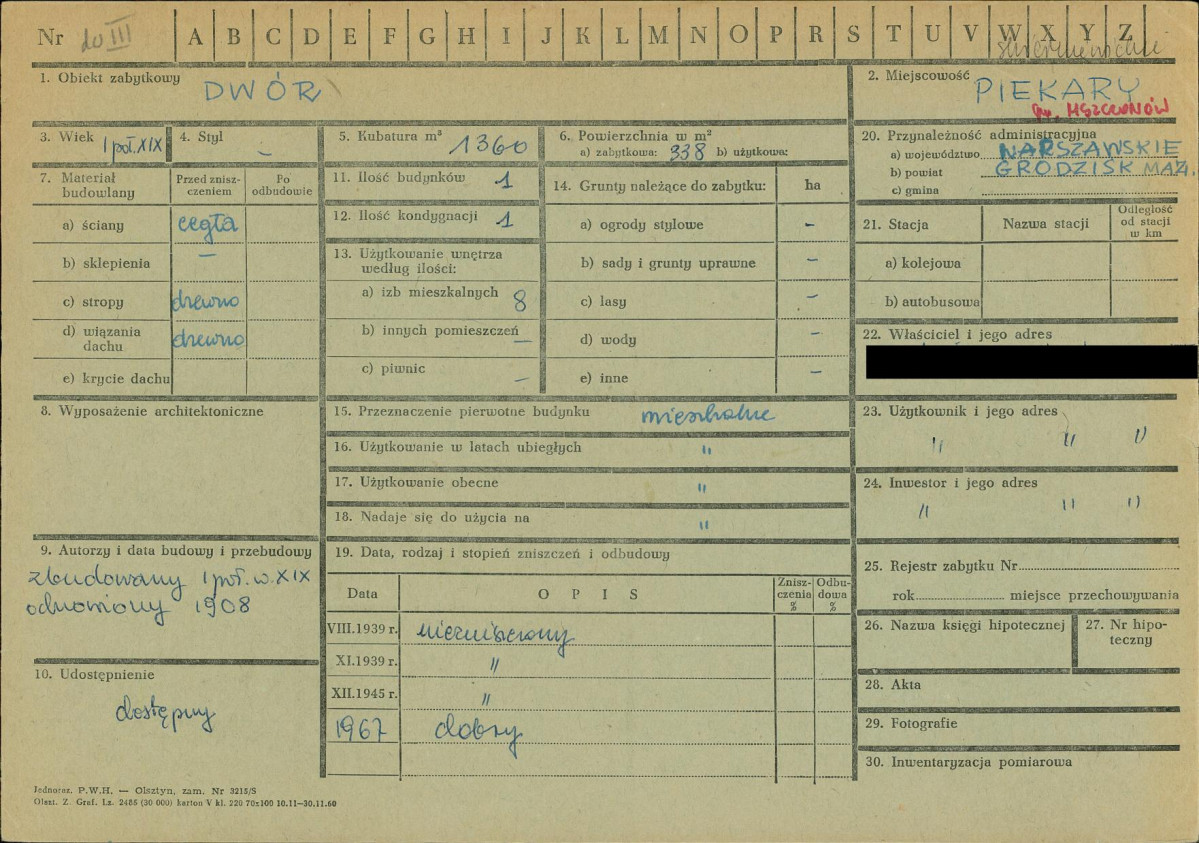 Nr do III A B C D E F G H I J K L M N O P R S T U V W X Y Z
skierniewickie
1. Obiekt zabytkowy
DWÓR
2. Miejscowość
PIEKARY
gm. MSZCZONÓW
3. Wiek I poł. XIX
4. Styl –
5. Kubatura m³ 1360
6. Powierzchnia w m²
a) zabytkowa: 338 b) użytkowa:
20. Przynależność administracyjna
a) województwo WARSZAWSKIE
b) powiat GRODZISK MAZ.
c) gmina
7. Materiał budowlany
Przed znisz-
czeniem
Po
odbudowie
a) ściany cegła
b) sklepienia –
c) stropy drewno
d) wiązania
dachu drewno
e) krycie dachu
11. Ilość budynków 1
12. Ilość kondygnacji 1
13. Użytkowanie wnętrza
według ilości:
a) izb mieszkalnych 8
b) innych pomieszczeń –
c) piwnic –
14. Grunty należące do zabytku: ha
a) ogrody stylowe –
b) sady i grunty uprawne –
c) lasy –
d) wody –
e) inne –
21. Stacja Nazwa stacji
Odległość
od stacji
w km
a) kolejowa
b) autobusowa
22. Właściciel i jego adres
8. Wyposażenie architektoniczne
15. Przeznaczenie pierwotne budynku mieszkalne
16. Użytkowanie w latach ubiegłych "
17. Użytkowanie obecne "
18. Nadaje się do użycia na "
23. Użytkownik i jego adres
" " "
24. Inwestor i jego adres
" " "
9. Autorzy i data budowy i przebudowy
zbudowany I poł. w. XIX
odnowiony 1908
10. Udostępnienie
dostępny
19. Data, rodzaj i stopień zniszczeń i odbudowy
Data OPIS
Znisz-
czenia
%
Odbu-
dowa
%
VIII.1939 r. niezniszczony
XI.1939 r. "
XII.1945 r. "
1967 dobry
25. Rejestr zabytku Nr
rok miejsce przechowywania
26. Nazwa księgi hipotecznej
27. Nr hipo-
teczny
28. Akta
29. Fotografie
30. Inwentaryzacja pomiarowa
Jednoraz. P.W.H. — Olsztyn, zam. Nr 3215/S
Olszt. Z. Graf. Lz. 2485 (30 000) karton V kl. 220 70x100 10.11—30.11.60